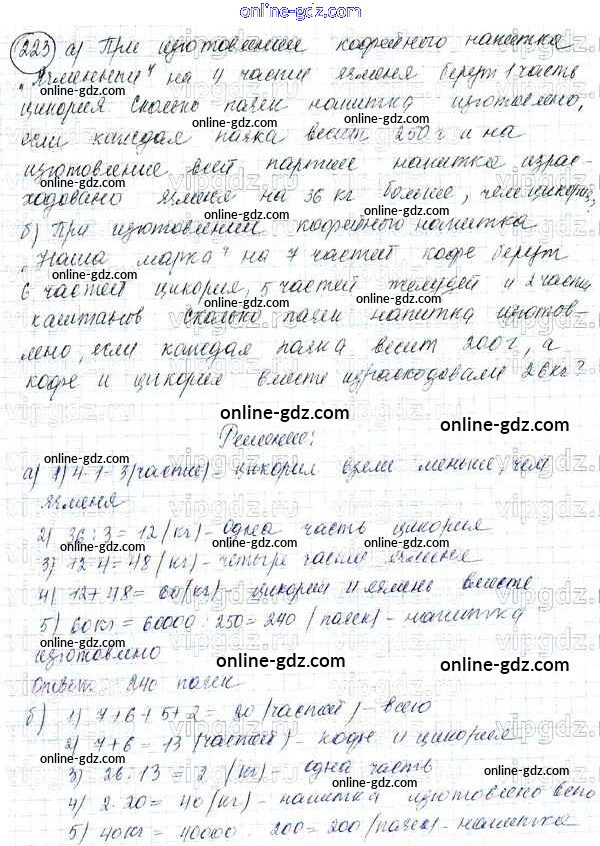 online-gdz.com
223 а) При изготовлении кофейного напитка
online-gdz.com online-gdz.com
"Ячменный" на 4 части ячменя берут 1 часть
цикория Сколько пачек напитка изготовлено,
online-gdz.com online-gdz.com
если каждая пачка весит 250 г и на
изготовление всей партии напитка израс-
online-gdz.com online-gdz.com
ходовано ячменя на 36 кг больше, чем цикория?
б) При изготовлении кофейного напитка
online-gdz.com online-gdz.com
"Наша марка" на 7 частей кофе берут
6 частей цикория, 5 частей желудей и 2 части
online-gdz.com online-gdz.com
каштанов Сколько пачек напитка изготов-
лено, если каждая пачка весит 200 г, а
online-gdz.com online-gdz.com
кофе и цикория вместе израсходовали 26 кг?
online-gdz.com
Решение:
online-gdz.com online-gdz.com
а) 1) 4-1=3 (части) - цикория взяли меньше, чем
ячменя
online-gdz.com online-gdz.com
2) 36:3=12 (кг) - одна часть цикория
3) 12·4=48 (кг) - четыре части ячменя
online-gdz.com online-gdz.com
4) 12+48=60 (кг) - цикорий и ячмень вместе
5) 60 кг = 60000 : 250 = 240 (пачек) - напитка
online-gdz.com online-gdz.com
изготовлено
online-gdz.com
Ответ: 240 пачек
online-gdz.com online-gdz.com
б) 1) 7+6+5+2=20 (частей) - всего
2) 7+6=13 (частей) - кофе и цикория
online-gdz.com online-gdz.com
3) 26:13=2 (кг) - одна часть
online-gdz.com online-gdz.com
4) 2·20=40 (кг) - напитка изготовлено всего
5) 40 кг = 40000 : 200 = 200 (пачек) - напитка
online-gdz.com